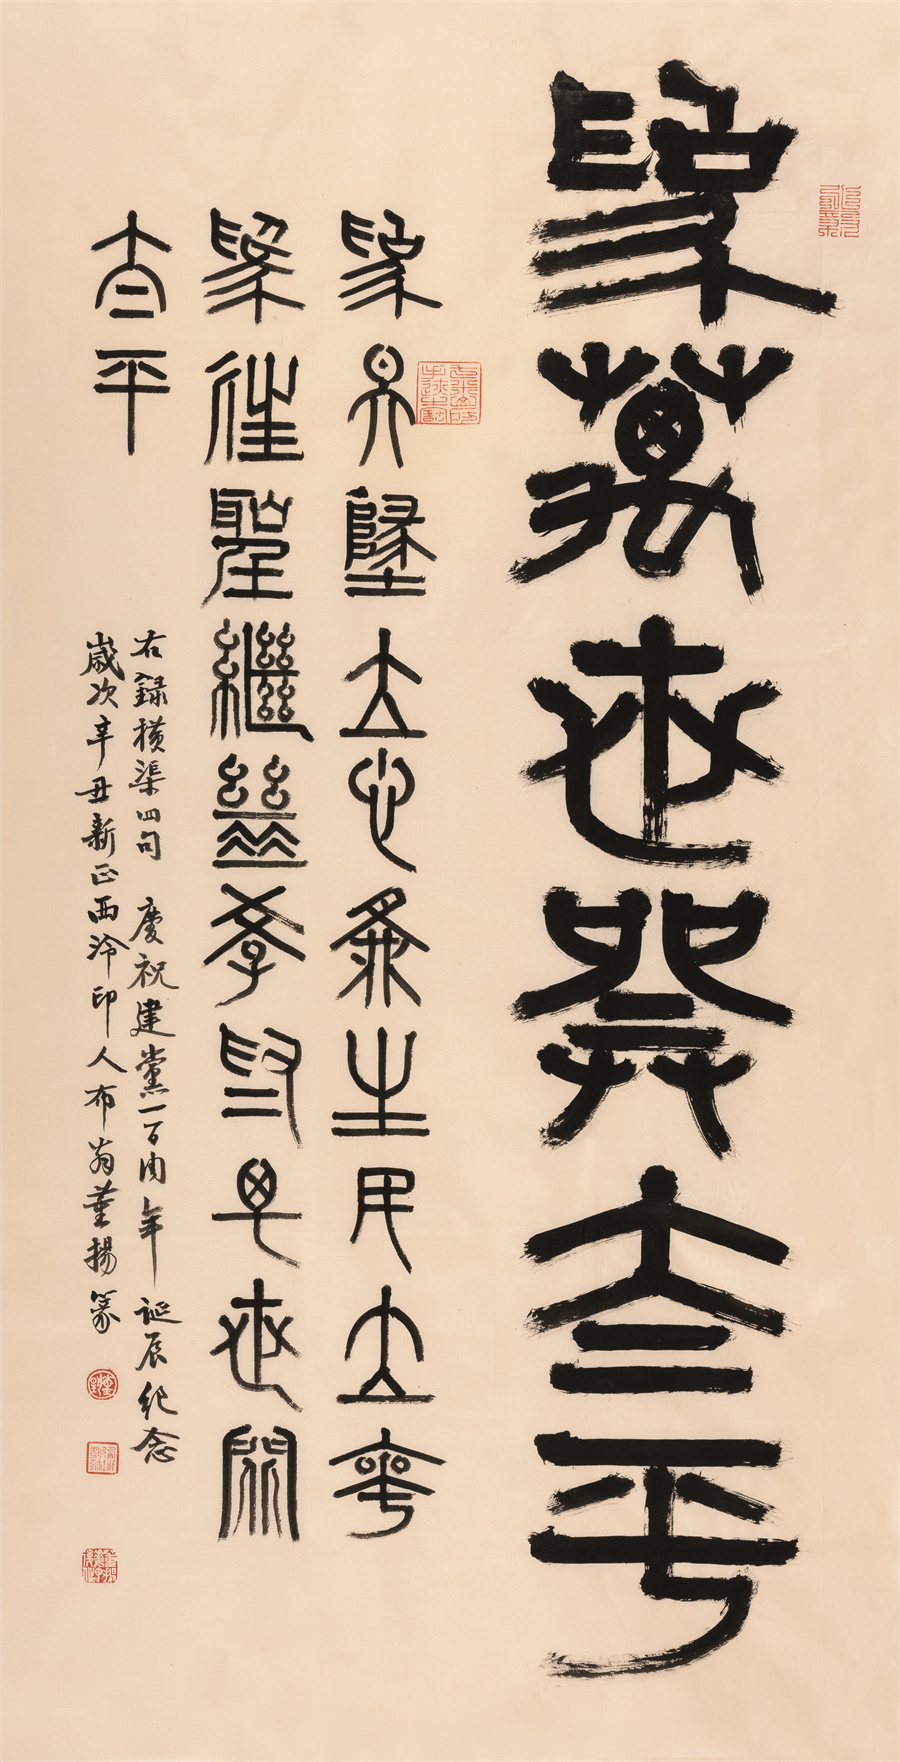 為萬世開太平
為天墬立心為生民立命
為往聖繼絕學為萬世開
太平
右録橫渠四句 慶祝建黨一百周年 誕辰紀念
歲次辛丑新正西泠印人布翁董揚篆